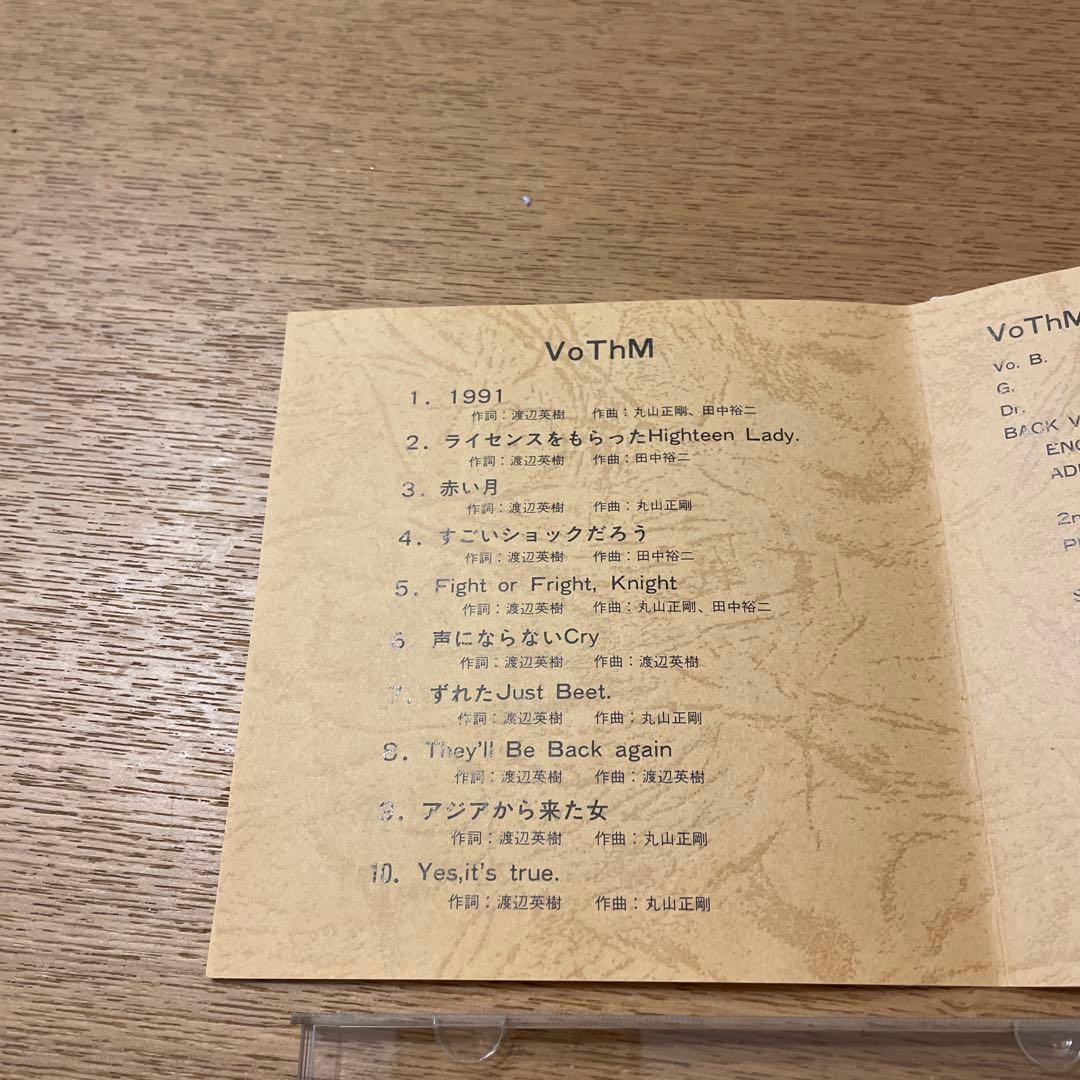 VoThM
1. 1991
作詞：渡辺英樹 作曲：丸山正剛、田中裕二
2. ライセンスをもらったHighteen Lady.
作詞：渡辺英樹 作曲：田中裕二
3. 赤い月
作詞：渡辺英樹 作曲：丸山正剛
4. すごいショックだろう
作詞：渡辺英樹 作曲：田中裕二
5. Fight or Fright, Knight
作詞：渡辺英樹 作曲：丸山正剛、田中裕二
6. 声にならないCry
作詞：渡辺英樹 作曲：渡辺英樹
7. ずれたJust Beet.
作詞：渡辺英樹 作曲：丸山正剛
8. They'll Be Back again
作詞：渡辺英樹 作曲：渡辺英樹
9. アジアから来た女
作詞：渡辺英樹 作曲：丸山正剛
10. Yes,it's true.
作詞：渡辺英樹 作曲：丸山正剛
VoThM
Vo. B.
G.
Dr.
BACK